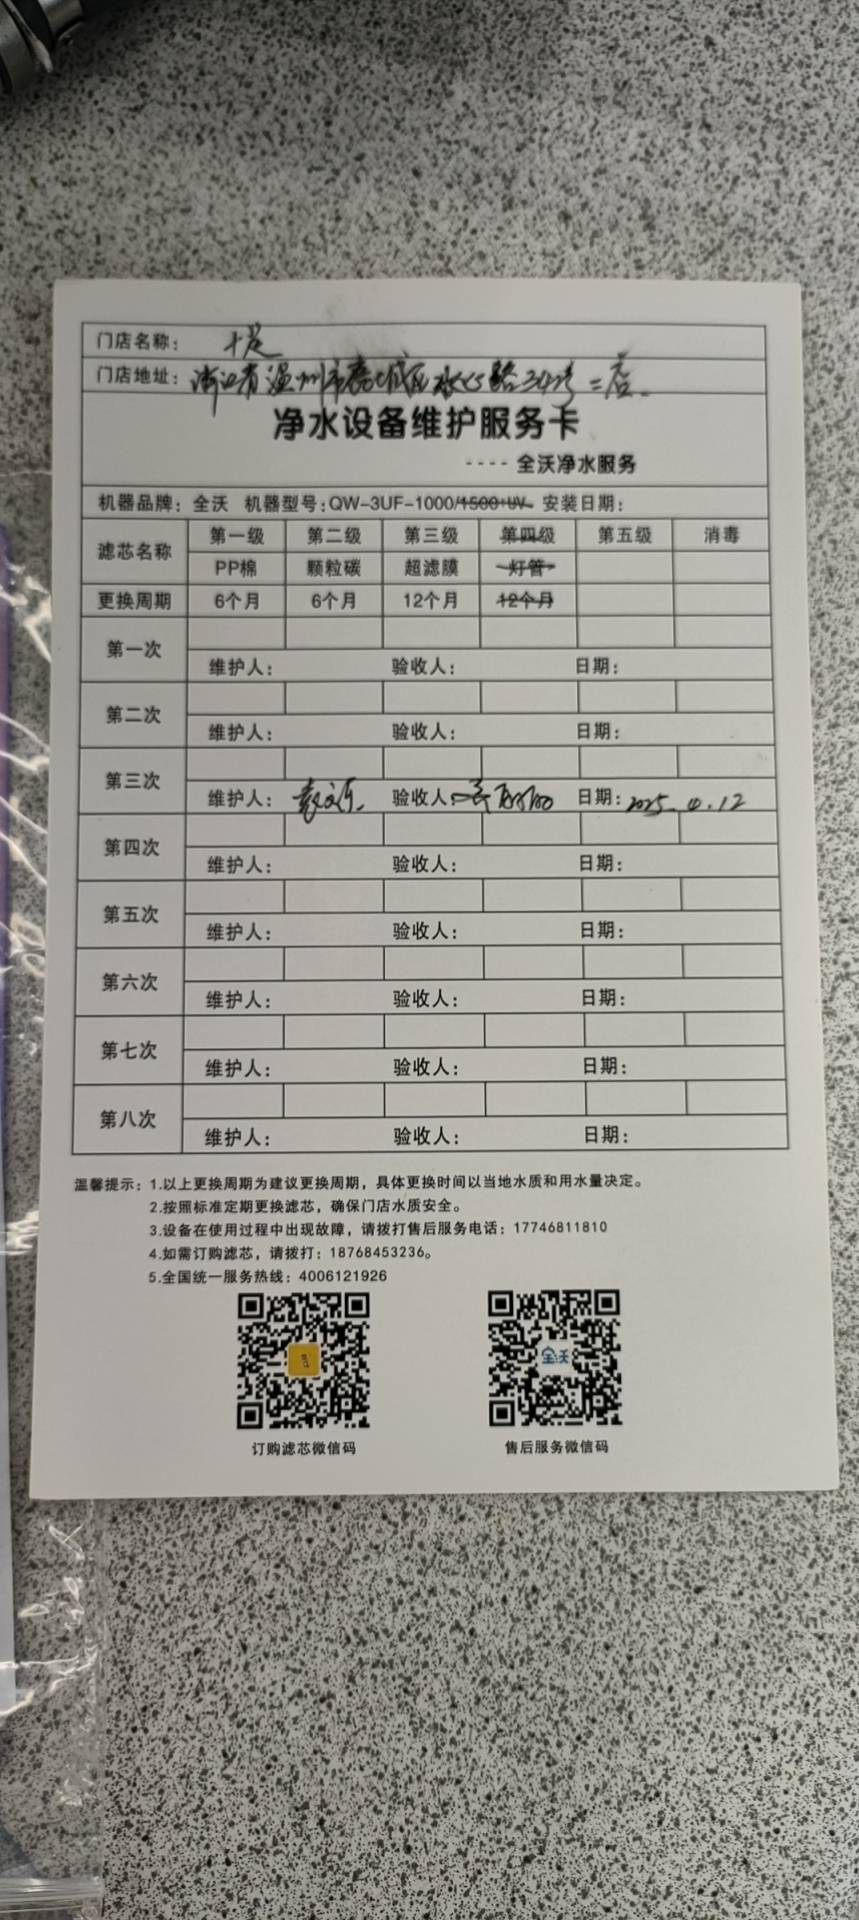 门店名称：十足
门店地址：浙江省温州市鹿城区水心路 二店
净水设备维护服务卡
---- 全沃净水服务
机器品牌：全沃 机器型号：QW-3UF-1000/1500+UV 安装日期：
滤芯名称 第一级 第二级 第三级 第四级 第五级 消毒
PP棉 颗粒碳 超滤膜 灯管
更换周期 6个月 6个月 12个月 12个月
第一次
维护人： 验收人： 日期：
第二次
维护人： 验收人： 日期：
第三次
维护人： 验收人： 日期：2025.4.12
第四次
维护人： 验收人： 日期：
第五次
维护人： 验收人： 日期：
第六次
维护人： 验收人： 日期：
第七次
维护人： 验收人： 日期：
第八次
维护人： 验收人： 日期：
温馨提示：1.以上更换周期为建议更换周期，具体更换时间以当地水质和用水量决定。
2.按照标准定期更换滤芯，确保门店水质安全。
3.设备在使用过程中出现故障，请拨打售后服务电话：17746811810
4.如需订购滤芯，请拨打：18768453236。
5.全国统一服务热线：4006121926
全沃
订购滤芯微信码 售后服务微信码